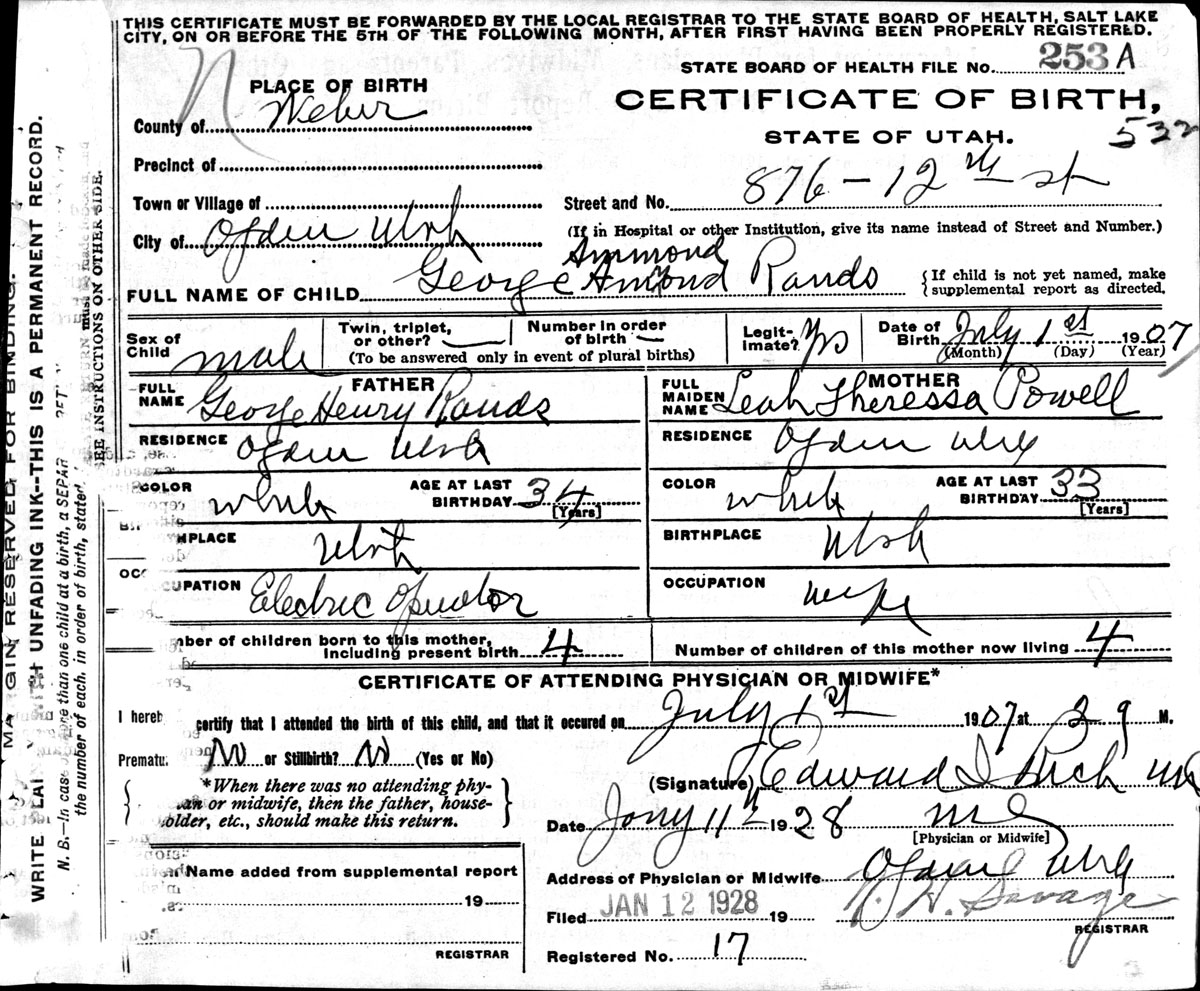 THIS CERTIFICATE MUST BE FORWARDED BY THE LOCAL REGISTRAR TO THE STATE BOARD OF HEALTH, SALT LAKE
CITY, ON OR BEFORE THE 5TH OF THE FOLLOWING MONTH, AFTER FIRST HAVING BEEN PROPERLY REGISTERED.
STATE BOARD OF HEALTH FILE No. 253 A
PLACE OF BIRTH
CERTIFICATE OF BIRTH,
County of Weber
STATE OF UTAH.
532
Precinct of
Town or Village of
Street and No. 876 - 12th st
City of Ogden Utah
(If in Hospital or other Institution, give its name instead of Street and Number.)
Ammond
FULL NAME OF CHILD George Amond Rands
{If child is not yet named, make
supplemental report as directed.
Sex of Child male
Twin, triplet, or other?
Number in order of birth
(To be answered only in event of plural births)
Legitimate? Yes
Date of Birth July 1st 1907
(Month) (Day) (Year)
FATHER
FULL NAME George Henry Rands
MOTHER
FULL MAIDEN NAME Leah Theressa Powell
RESIDENCE Ogden Utah
RESIDENCE Ogden Utah
COLOR white
AGE AT LAST BIRTHDAY 34
[Years]
COLOR white
AGE AT LAST BIRTHDAY 33
[Years]
HPLACE Utah
BIRTHPLACE Utah
CUPATION Electric Operator
OCCUPATION wife
mber of children born to this mother,
Including present birth 4
Number of children of this mother now living 4
CERTIFICATE OF ATTENDING PHYSICIAN OR MIDWIFE*
I hereb certify that I attended the birth of this child, and that it occured on July 1st 1907 at 3 9 M.
Prematu No or Stillbirth? No (Yes or No)
(Signature) Edward I Rich MD
*When there was no attending phy-
an or midwife, then the father, house-
older, etc., should make this return.
Date Jany 11th 1928 MD
[Physician or Midwife]
Address of Physician or Midwife Ogden Utah
Name added from supplemental report
19
Filed JAN 12 1928 19
Savage
REGISTRAR
REGISTRAR
Registered No. 17
GIN RESERVED FOR BINDING.
UNFADING INK--THIS IS A PERMANENT RECORD.
N. B.—In case of more than one child at a birth, a SEPAR
the number of each, in order of birth, stated.
SEE INSTRUCTIONS ON OTHER SIDE.